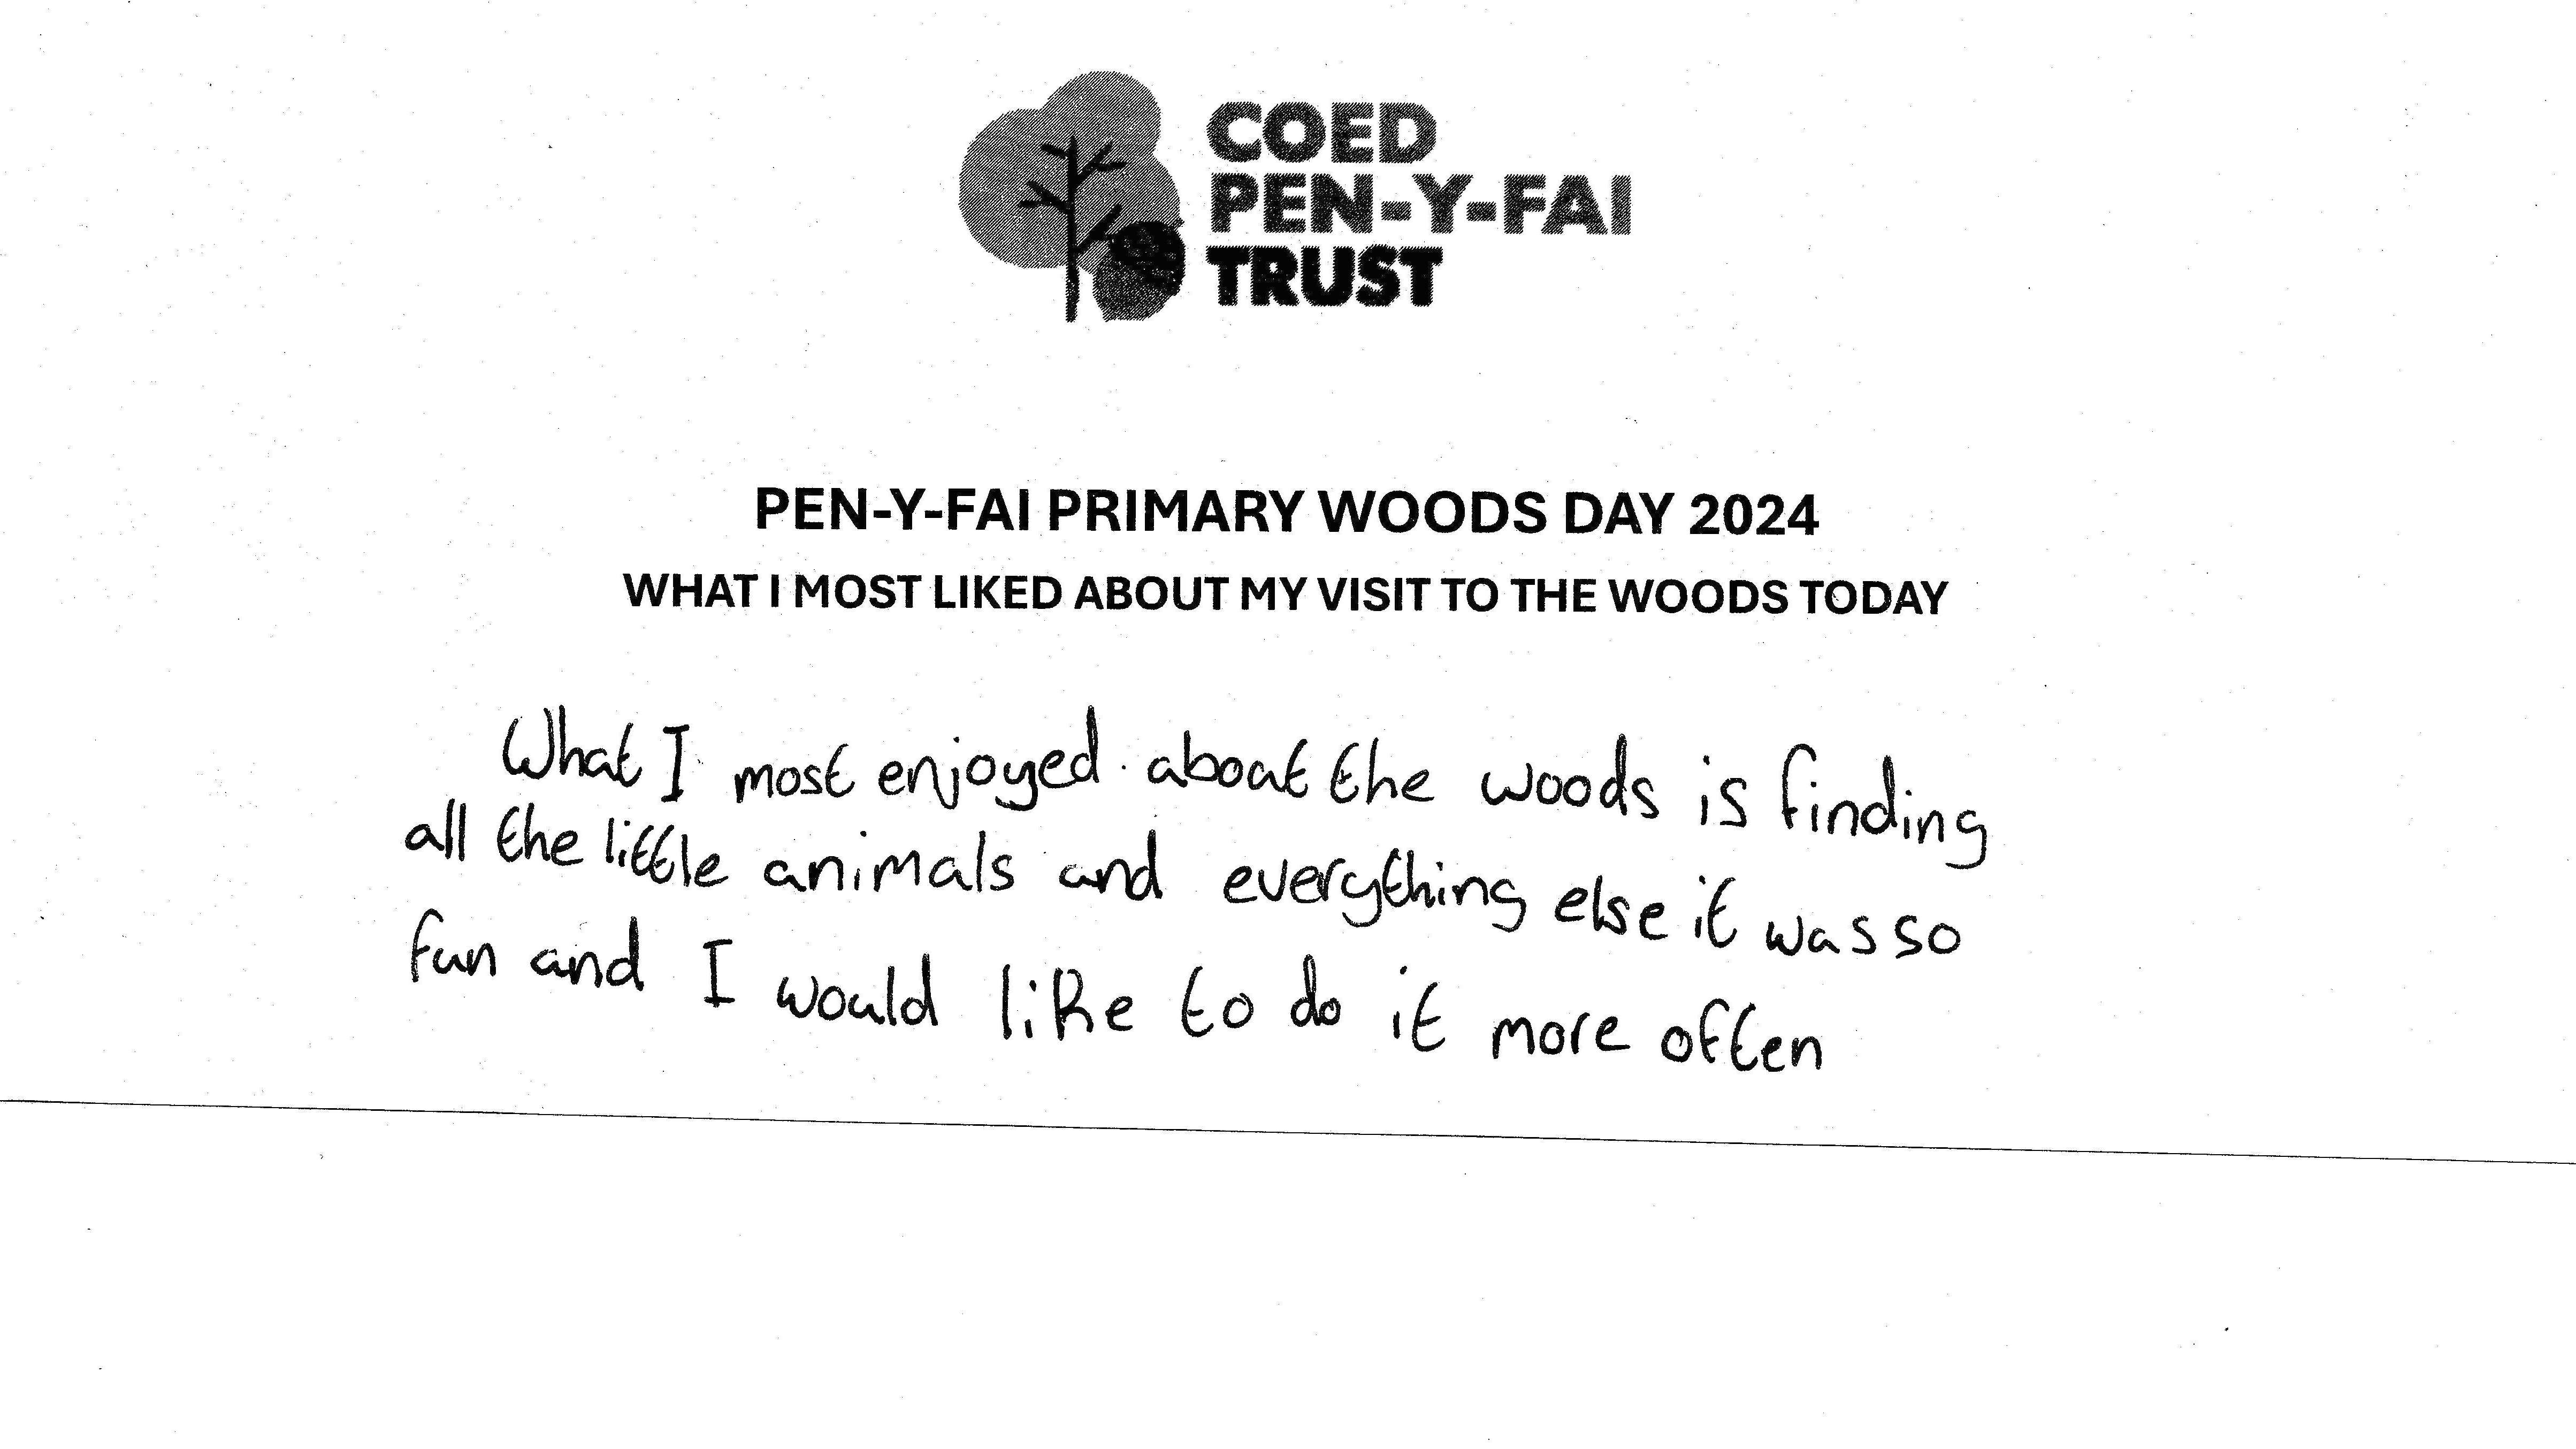 COED
PEN-Y-FAI
TRUST
PEN-Y-FAI PRIMARY WOODS DAY 2024
WHAT I MOST LIKED ABOUT MY VISIT TO THE WOODS TODAY
What I most enjoyed about the woods is finding
all the little animals and everything else it was so
fun and I would like to do it more often